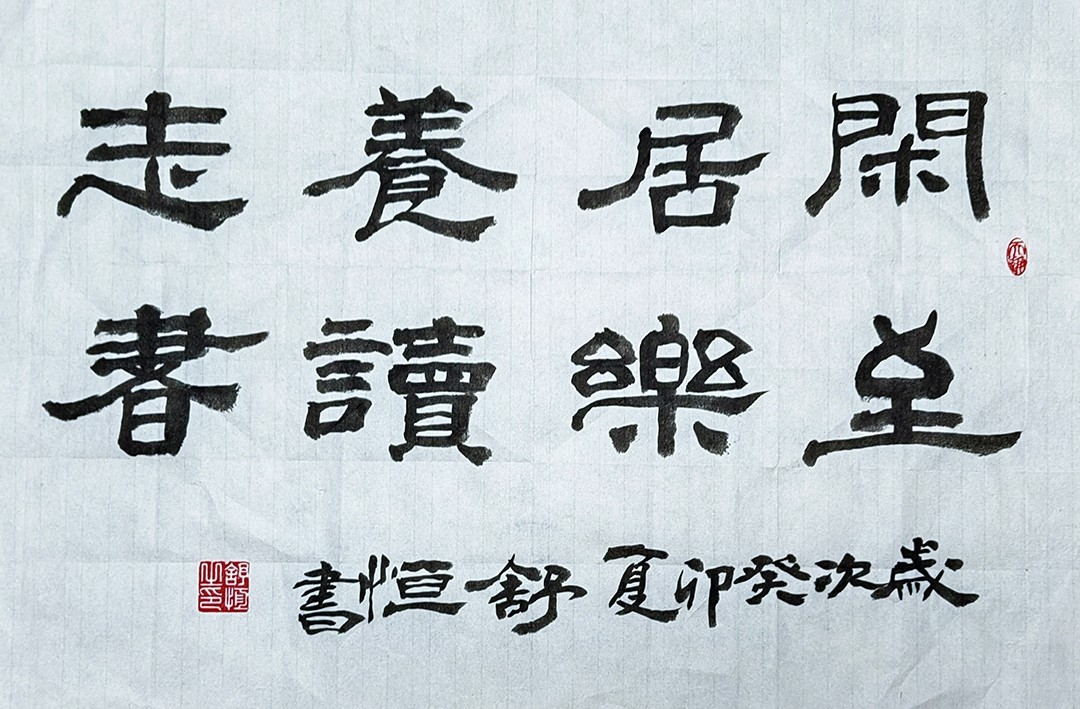 閑居養志
至樂讀書
歲次癸卯夏舒恒書
舒恒之印